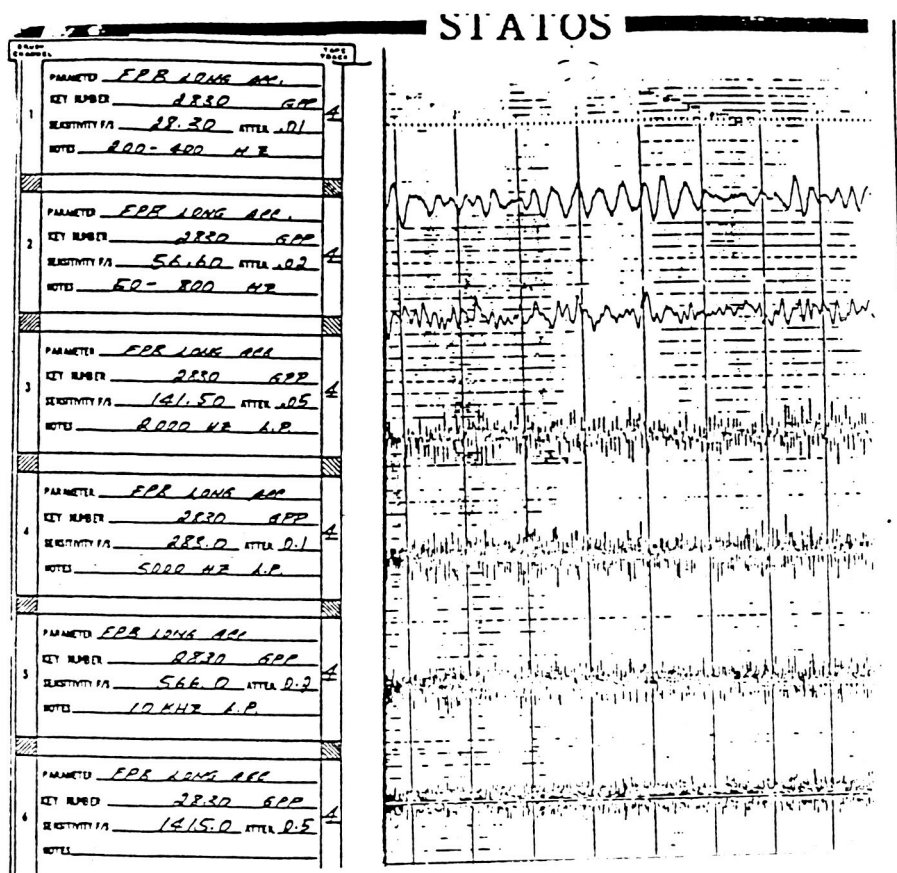 STATOS
BRUSH CHANNEL
TAPE TRACK
1
PARAMETER FPB LONG ACC.
KEY NUMBER 2830 GPP
SENSITIVITY F/S 28.30 ATTEN. .01
NOTES 200-400 HZ
4
2
PARAMETER FPB LONG ACC.
KEY NUMBER 2830 GPP
SENSITIVITY F/S 56.60 ATTEN. .02
NOTES 50- 800 HZ
4
3
PARAMETER FPB LONG ACC
KEY NUMBER 2830 GPP
SENSITIVITY F/S 141.50 ATTEN. .05
NOTES 2000 HZ L.P.
4
4
PARAMETER FPB LONG ACC
KEY NUMBER 2830 GPP
SENSITIVITY F/S 283.0 ATTEN. 0.1
NOTES 5000 HZ L.P.
4
5
PARAMETER FPB LONG ACC
KEY NUMBER 2830 GPP
SENSITIVITY F/S 566.0 ATTEN. 0.2
NOTES 10 KHZ L.P.
4
6
PARAMETER FPB LONG ACC
KEY NUMBER 2830 GPP
SENSITIVITY F/S 1415.0 ATTEN. 0.5
NOTES
4